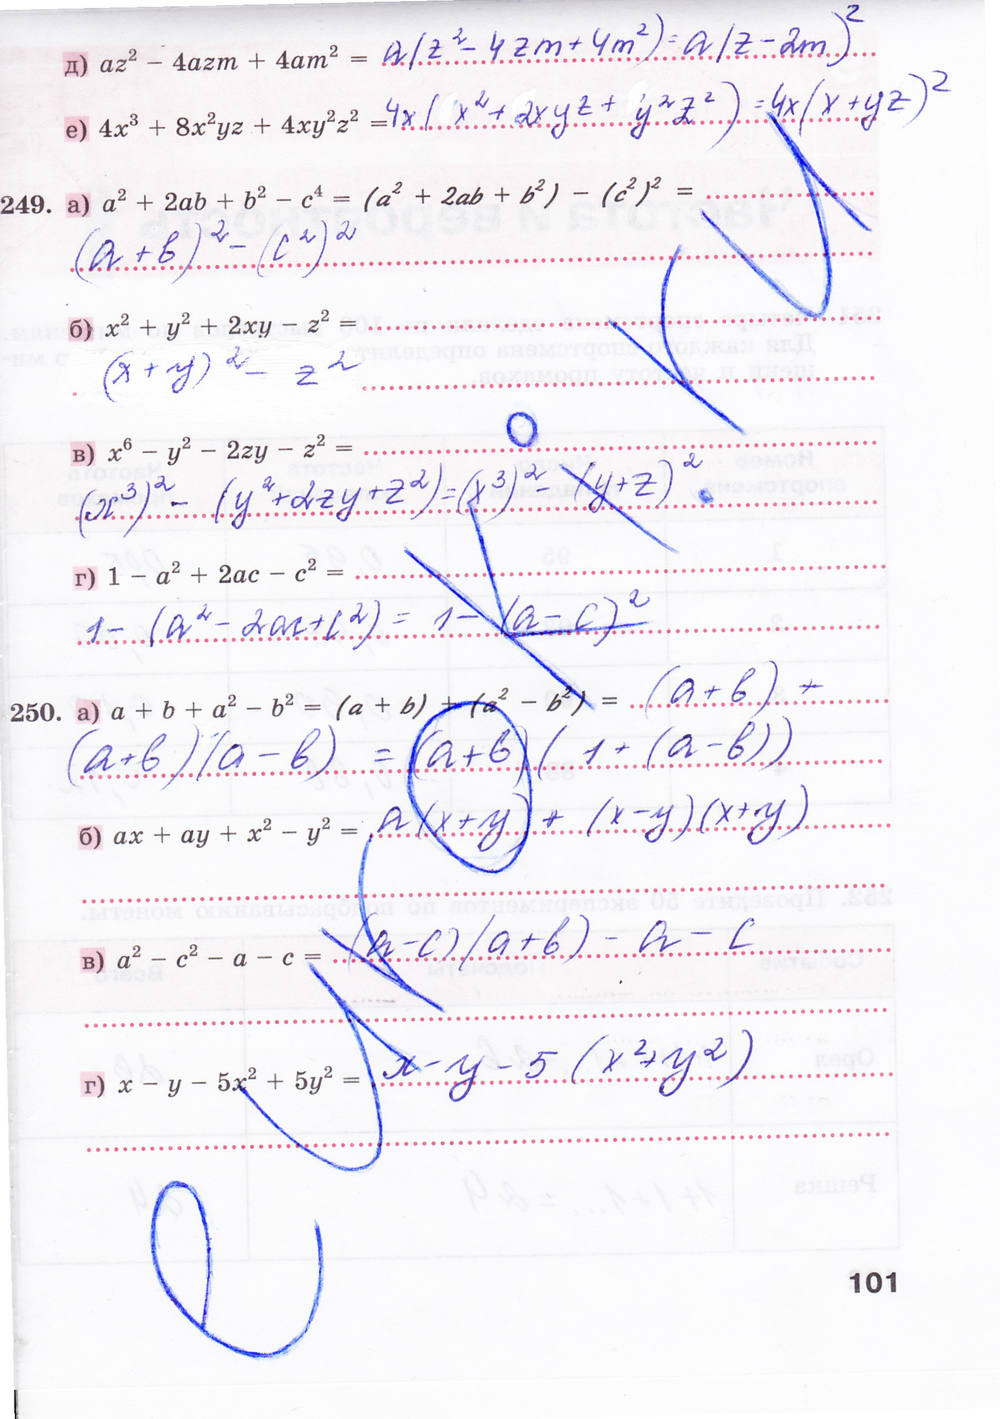 д) az² − 4azm + 4am² = a(z² − 4zm + 4m²) = a(z − 2m)²
е) 4x³ + 8x²yz + 4xy²z² = 4x(x² + 2xyz + y²z²) = 4x(x + yz)²
249. а) a² + 2ab + b² − c⁴ = (a² + 2ab + b²) − (c²)² =
(a + b)² − (c²)²
б) x² + y² + 2xy − z² =
(x + y)² − z²
в) x⁶ − y² − 2zy − z² =
(x³)² − (y² + 2zy + z²) = (x³)² − (y + z)²
г) 1 − a² + 2ac − c² =
1 − (a² − 2ac + c²) = 1 − (a − c)²
250. а) a + b + a² − b² = (a + b) + (a² − b²) = (a + b) +
(a + b)(a − b) = (a + b)(1 + (a − b))
б) ax + ay + x² − y² = a(x + y) + (x − y)(x + y)
в) a² − c² − a − c = (a − c)(a + b) − a − c
г) x − y − 5x² + 5y² = x − y − 5(x² + y²)
101